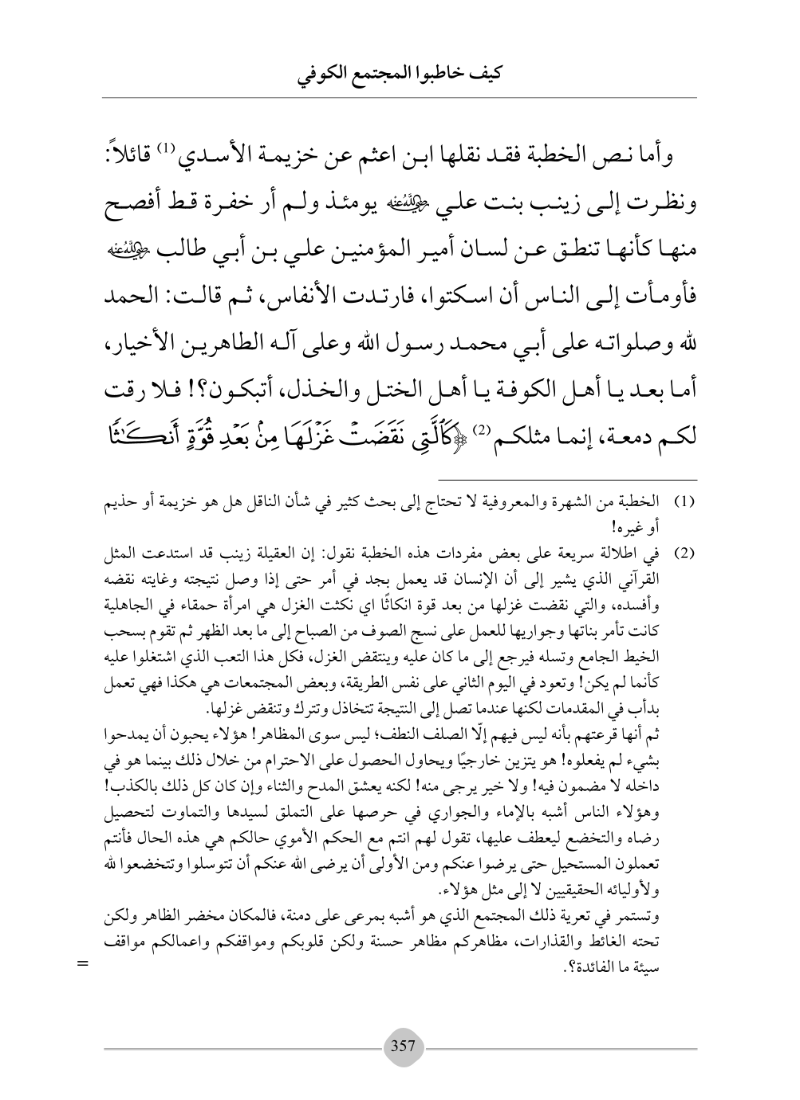 كيف خاطبوا المجتمع الكوفي
وأما نص الخطبة فقد نقلها ابن اعثم عن خزيمة الأسدي(1) قائلاً:
ونظرت إلى زينب بنت علي رضي الله عنه يومئذ ولم أر خفرة قط أفصح
منها كأنها تنطق عن لسان أمير المؤمنين علي بن أبي طالب رضي الله عنه
فأومأت إلى الناس أن اسكتوا، فارتدت الأنفاس، ثم قالت: الحمد
لله وصلواته على أبي محمد رسول الله وعلى آله الطاهرين الأخيار،
أما بعد يا أهل الكوفة يا أهل الختل والخذل، أتبكون؟! فلا رقت
لكم دمعة، إنما مثلكم(2) ﴿كَٱلَّتِي نَقَضَتۡ غَزۡلَهَا مِنۢ بَعۡدِ قُوَّةٍ أَنكَٰثٗا
(1) الخطبة من الشهرة والمعروفية لا تحتاج إلى بحث كثير في شأن الناقل هل هو خزيمة أو حذيم
أو غيره!
(2) في اطلالة سريعة على بعض مفردات هذه الخطبة نقول: إن العقيلة زينب قد استدعت المثل
القرآني الذي يشير إلى أن الإنسان قد يعمل بجد في أمر حتى إذا وصل نتيجته وغايته نقضه
وأفسده، والتي نقضت غزلها من بعد قوة انكاثًا اي نكثت الغزل هي امرأة حمقاء في الجاهلية
كانت تأمر بناتها وجواريها للعمل على نسج الصوف من الصباح إلى ما بعد الظهر ثم تقوم بسحب
الخيط الجامع وتسله فيرجع إلى ما كان عليه وينتقض الغزل، فكل هذا التعب الذي اشتغلوا عليه
كأنما لم يكن! وتعود في اليوم الثاني على نفس الطريقة، وبعض المجتمعات هي هكذا فهي تعمل
بدأب في المقدمات لكنها عندما تصل إلى النتيجة تتخاذل وتترك وتنقض غزلها.
ثم أنها قرعتهم بأنه ليس فيهم إلّا الصلف النطف؛ ليس سوى المظاهر! هؤلاء يحبون أن يمدحوا
بشيء لم يفعلوه! هو يتزين خارجيًا ويحاول الحصول على الاحترام من خلال ذلك بينما هو في
داخله لا مضمون فيه! ولا خير يرجى منه! لكنه يعشق المدح والثناء وإن كان كل ذلك بالكذب!
وهؤلاء الناس أشبه بالإماء والجواري في حرصها على التملق لسيدها والتماوت لتحصيل
رضاه والتخضع ليعطف عليها، تقول لهم انتم مع الحكم الأموي حالكم هي هذه الحال فأنتم
تعملون المستحيل حتى يرضوا عنكم ومن الأولى أن يرضى الله عنكم أن تتوسلوا وتتخضعوا لله
ولأوليائه الحقيقيين لا إلى مثل هؤلاء.
وتستمر في تعرية ذلك المجتمع الذي هو أشبه بمرعى على دمنة، فالمكان مخضر الظاهر ولكن
تحته الغائط والقذارات، مظاهركم مظاهر حسنة ولكن قلوبكم ومواقفكم واعمالكم مواقف
سيئة ما الفائدة؟. =
357